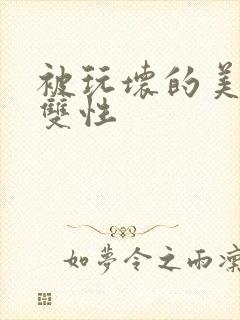 被玩壞的美
雙性
如夢令之雨凜